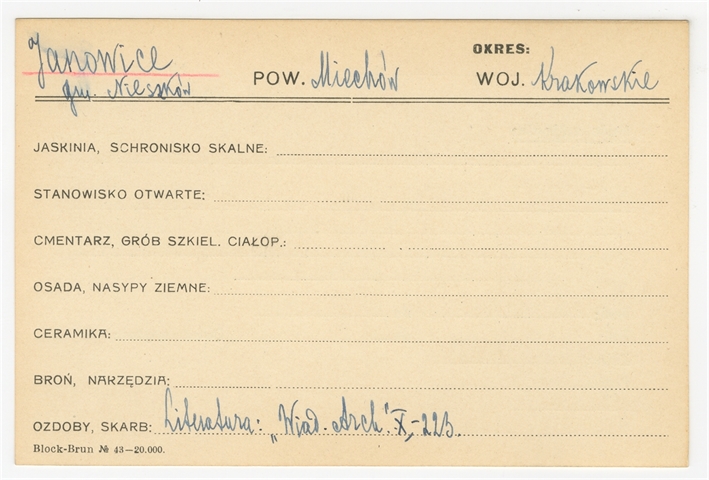 Janowice
gm. Nieszków
POW. Miechów
OKRES:
WOJ. Krakowskie
JASKINIA, SCHRONISKO SKALNE:
STANOWISKO OTWARTE:
CMENTARZ, GRÓB SZKIEL. CIAŁOP.:
OSADA, NASYPY ZIEMNE:
CERAMIKA:
BROŃ, NARZĘDZIA:
OZDOBY, SKARB: Literatura: „Wiad. Arch." X,-223.
Block-Brun № 43—20.000.